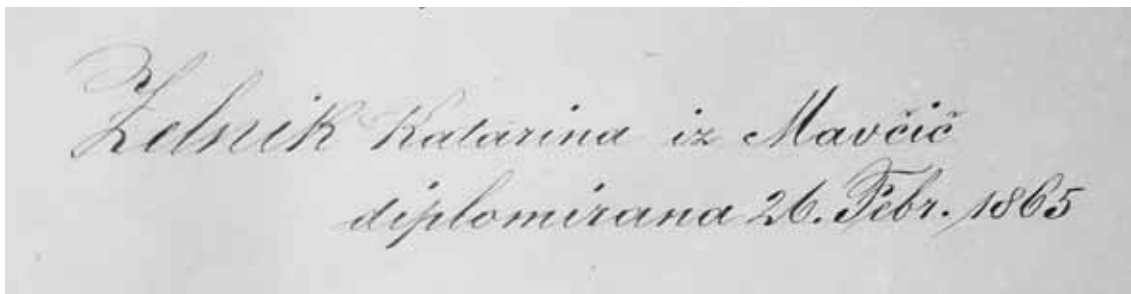 Zelnik Katarina iz Mavčič
diplomirana 26. Febr. 1865